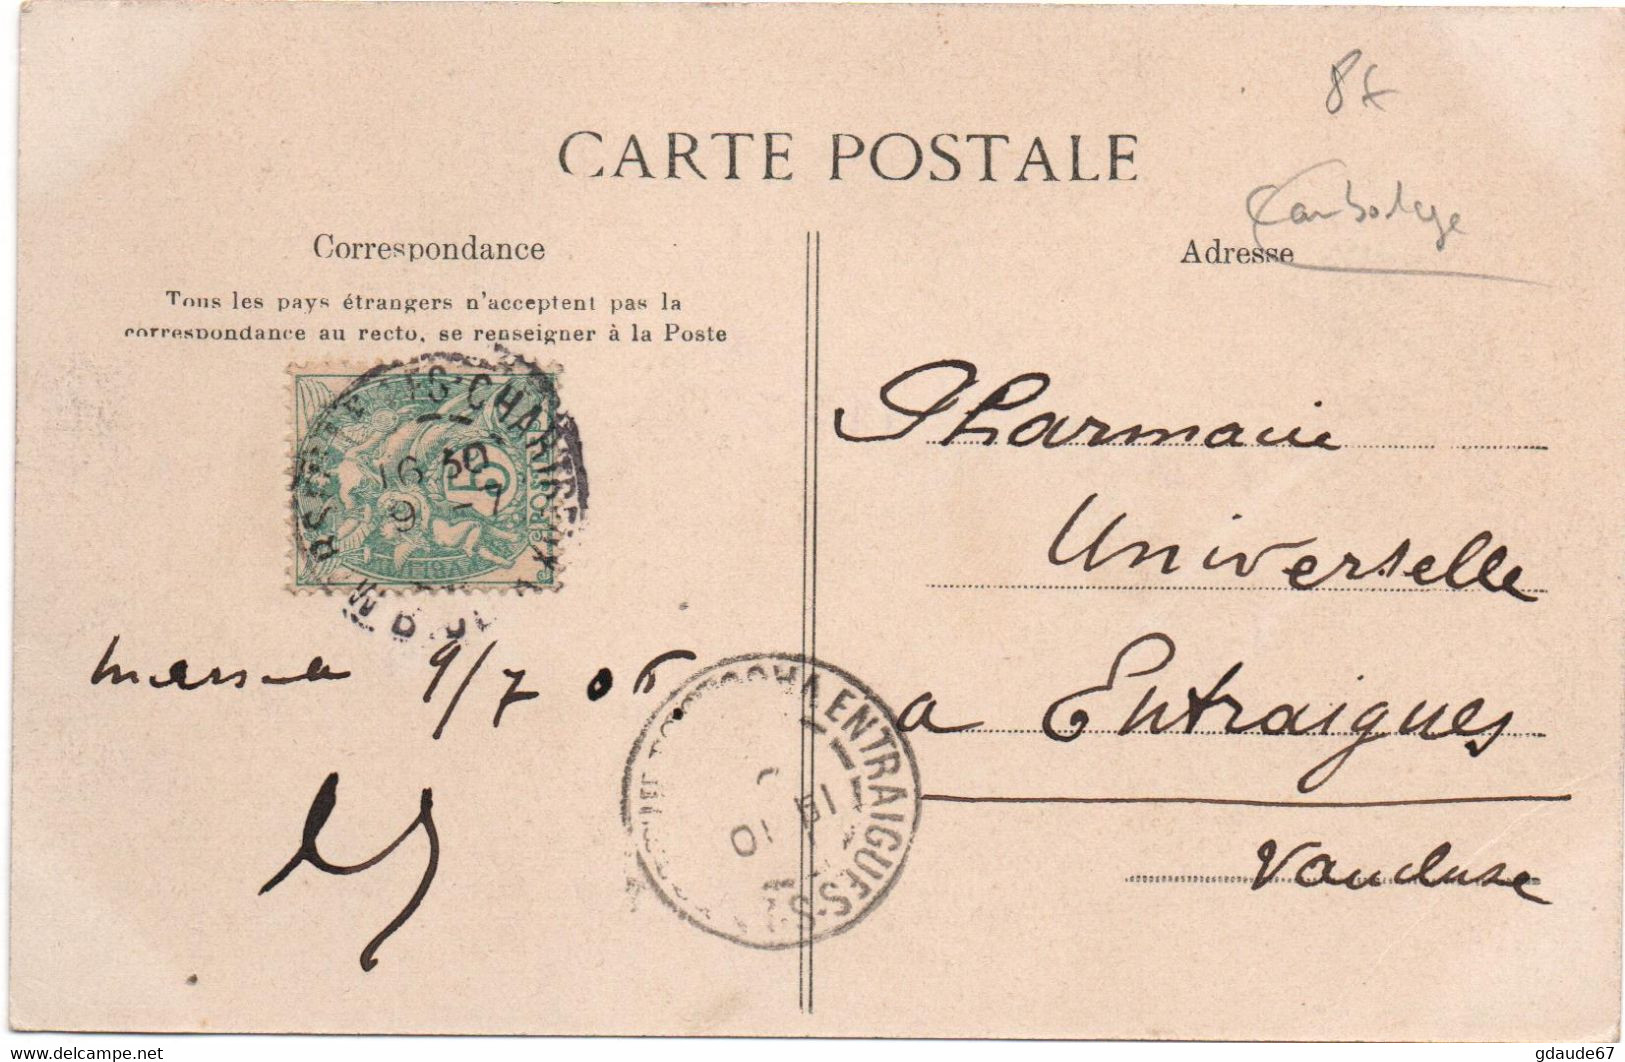 8€
Cambodge
CARTE POSTALE
Correspondance
Tous les pays étrangers n'acceptent pas la
correspondance au recto, se renseigner à la Poste
Adresse
16 30
9 -7
5
POSTES
Pharmacie
Universelle
a Entraigues
Vaucluse
9/7 06
ENTRAIGUES-S
10
www.delcampe.net
gdaude67